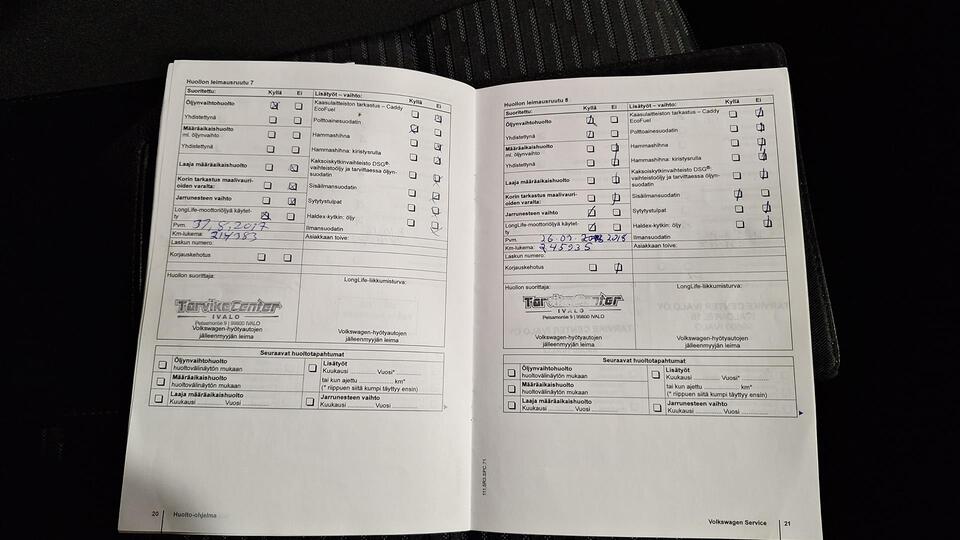 Huollon leimausruutu 7
Suoritettu: Kyllä Ei Lisätyöt – vaihto: Kyllä Ei
Öljynvaihtohuolto Kaasulaitteiston tarkastus – Caddy
EcoFuel
Yhdistettynä Polttoainesuodatin
Määräaikaishuolto
ml. öljynvaihto Hammashihna
Yhdistettynä Hammashihna: kiristysrulla
Laaja määräaikaishuolto Kaksoiskytkinvaihteisto DSG®:
vaihteistoöljy ja tarvittaessa öljyn-
suodatin
Korin tarkastus maalivauri-
oiden varalta: Sisäilmansuodatin
Jarrunesteen vaihto Sytytystulpat
LongLife-moottoriöljyä käytet-
ty Haldex-kytkin: öljy
Pvm. 31.5.2017 Ilmansuodatin
Km-lukema: Asiakkaan toive:
Laskun numero:
Korjauskehotus
Huollon suorittaja: LongLife-liikkumisturva:
TarvikeCenter
IVALO
Petsamontie 9 | 99800 IVALO
Volkswagen-hyötyautojen
jälleenmyyjän leima
Volkswagen-hyötyautojen
jälleenmyyjän leima
Seuraavat huoltotapahtumat
Öljynvaihtohuolto
huoltovälinäytön mukaan
Lisätyöt
Kuukausi Vuosi*
Määräaikaishuolto
huoltovälinäytön mukaan
tai kun ajettu km*
(* riippuen siitä kumpi täyttyy ensin)
Laaja määräaikaishuolto
Kuukausi Vuosi
Jarrunesteen vaihto
Kuukausi Vuosi
20 Huolto-ohjelma
Huollon leimausruutu 8
Suoritettu: Kyllä Ei Lisätyöt – vaihto: Kyllä Ei
Öljynvaihtohuolto Kaasulaitteiston tarkastus – Caddy
EcoFuel
Yhdistettynä Polttoainesuodatin
Määräaikaishuolto
ml. öljynvaihto Hammashihna
Yhdistettynä Hammashihna: kiristysrulla
Laaja määräaikaishuolto Kaksoiskytkinvaihteisto DSG®:
vaihteistoöljy ja tarvittaessa öljyn-
suodatin
Korin tarkastus maalivauri-
oiden varalta: Sisäilmansuodatin
Jarrunesteen vaihto Sytytystulpat
LongLife-moottoriöljyä käytet-
ty Haldex-kytkin: öljy
Pvm. 2018 Ilmansuodatin
Km-lukema: 245935 Asiakkaan toive:
Laskun numero:
Korjauskehotus
Huollon suorittaja: LongLife-liikkumisturva:
TarvikeCenter
IVALO
Petsamontie 9 | 99800 IVALO
Volkswagen-hyötyautojen
jälleenmyyjän leima
Volkswagen-hyötyautojen
jälleenmyyjän leima
Seuraavat huoltotapahtumat
Öljynvaihtohuolto
huoltovälinäytön mukaan
Lisätyöt
Kuukausi Vuosi*
Määräaikaishuolto
huoltovälinäytön mukaan
tai kun ajettu km*
(* riippuen siitä kumpi täyttyy ensin)
Laaja määräaikaishuolto
Kuukausi Vuosi
Jarrunesteen vaihto
Kuukausi Vuosi
Volkswagen Service 21